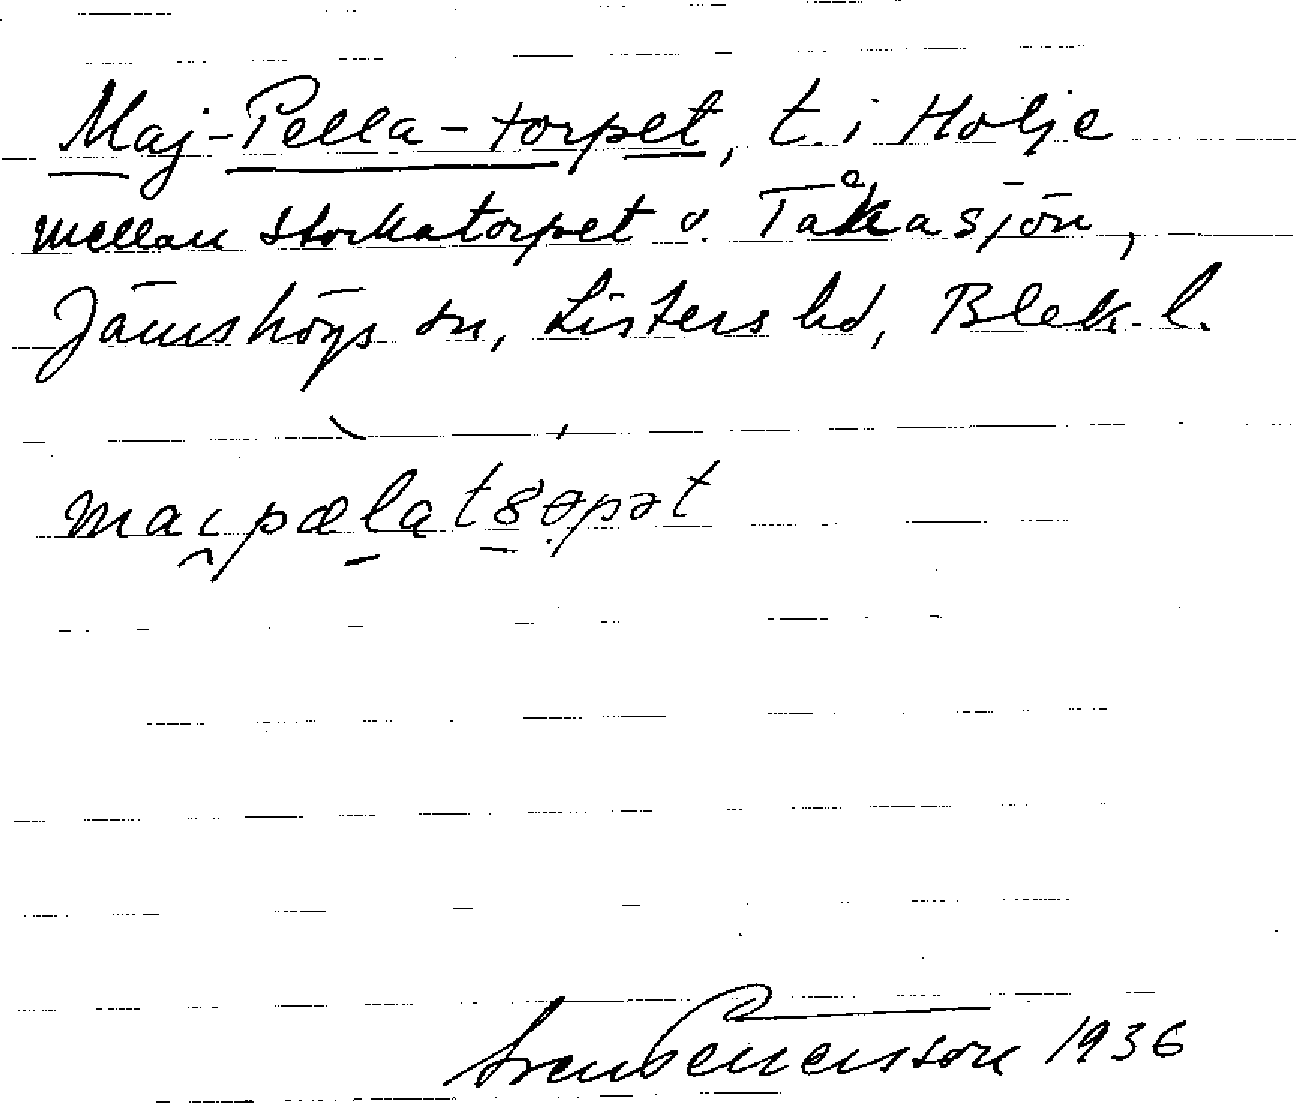 Maj-Pella-torpet, t. i Holje
mellan Storkatorpet o. Tåkasjön,
Jämshögs sn, Listers hd, Blek. l.
maipælatȣrpət
Sven Benerson 1936